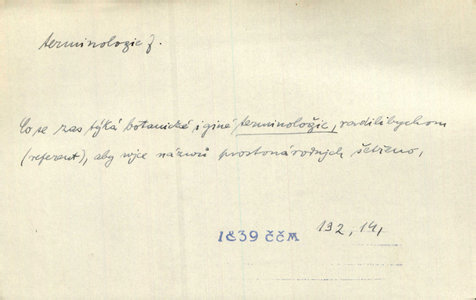 terminologie f.
Co se zas týká botanické i giné terminologie, radilibychom
(referent), aby wjce názwů prostonárodnjch šetřeno,
1839 ččM 192, 14,